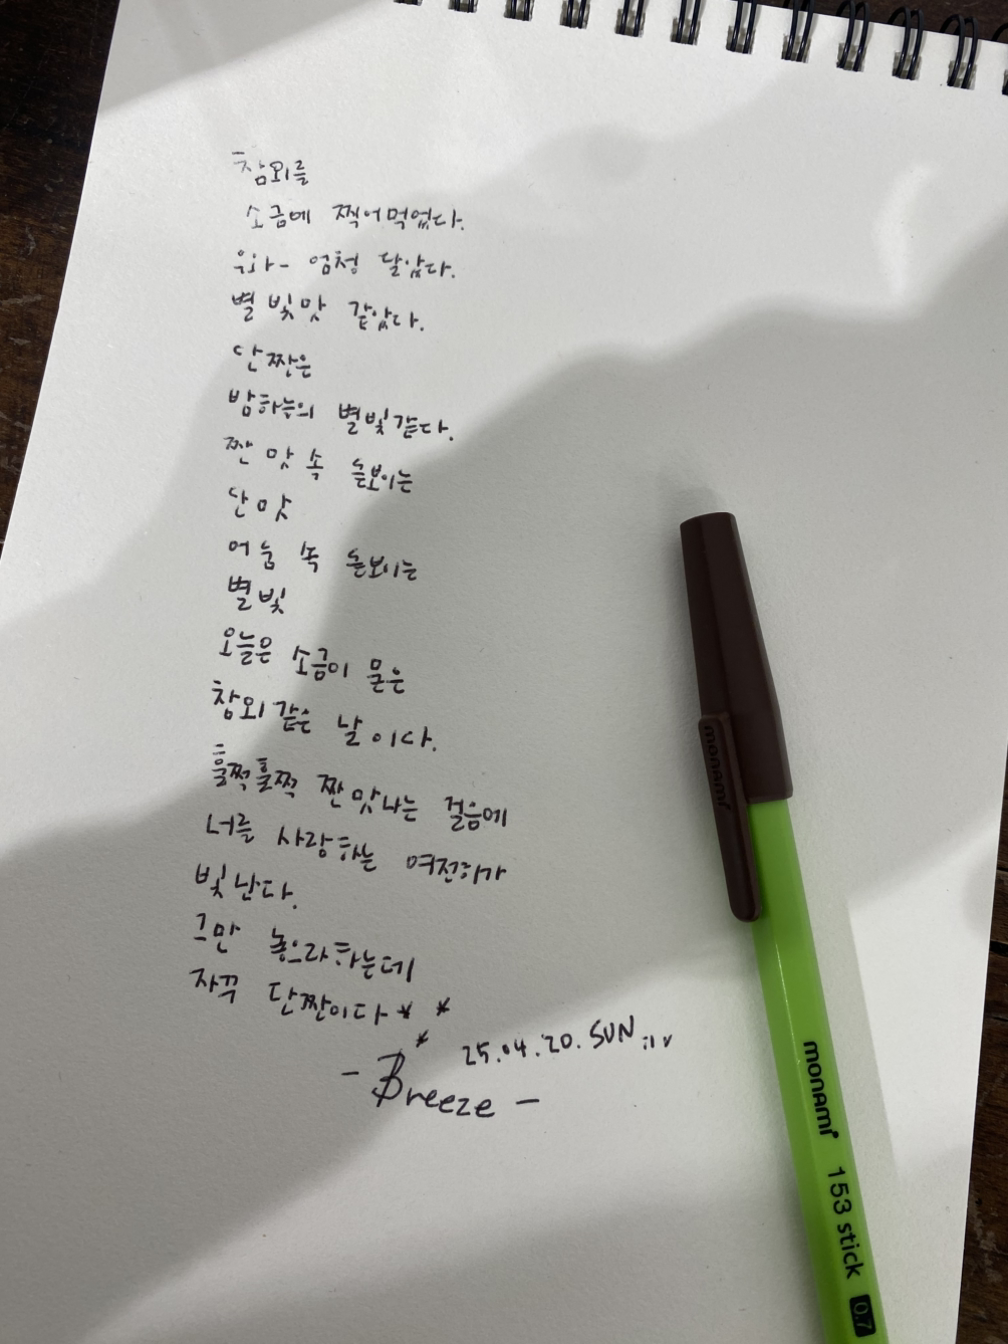 참외를
소금에 찍어먹었다.
우와- 엄청 달았다.
별빛맛 같았다.
단짠은
밤하늘의 별빛같다.
짠 맛 속 돋보이는
단맛
어둠 속 돋보이는
별빛
오늘은 소금이 묻은
참외 같은 날이다.
훌쩍훌쩍 짠 맛나는 걸음에
너를 사랑하는 여전히가
빛난다.
그만 놓으라하는데
자꾸 단짠이다* *
*
25.04.20.SUN
- Breeze -
monami
monami 153 stick 0.7